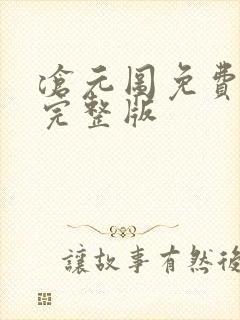 滄元圖免費
完整版
讓故事有然後